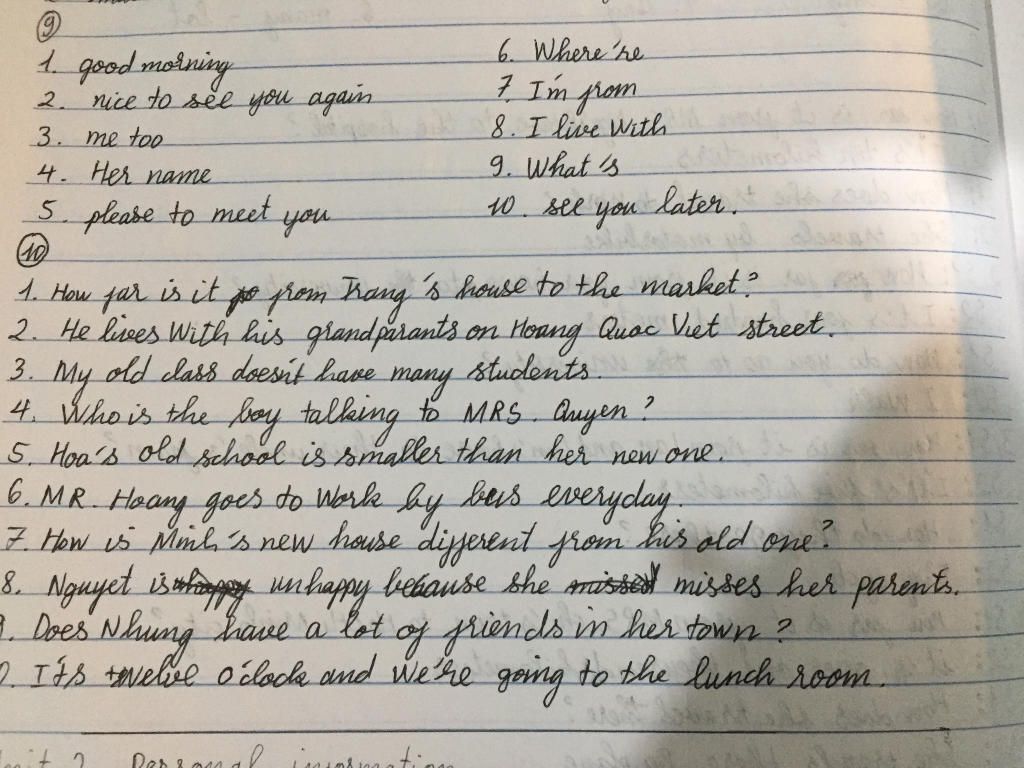 9
1. good morning
2. nice to see you again
3. me too
4. Her name
5. please to meet you
6. Where're
7. I'm from
8. I live With
9. What's
10. see you later.
10
1. How far is it from Trang's house to the market?
2. He lives With his grandparants on Hoang Quoc Viet street.
3. My old class doesn't have many students.
4. Who is the boy talking to MRS. Quyen?
5. Hoa's old school is smaller than her new one.
6. MR. Hoang goes to Work by bus everyday.
7. How is Minh's new house different from his old one?
8. Nguyet is happy unhappy because she missed misses her parents.
9. Does Nhung have a lot of friends in her town?
0. It's twelve o'clock and We're going to the lunch room.
2 Personal information